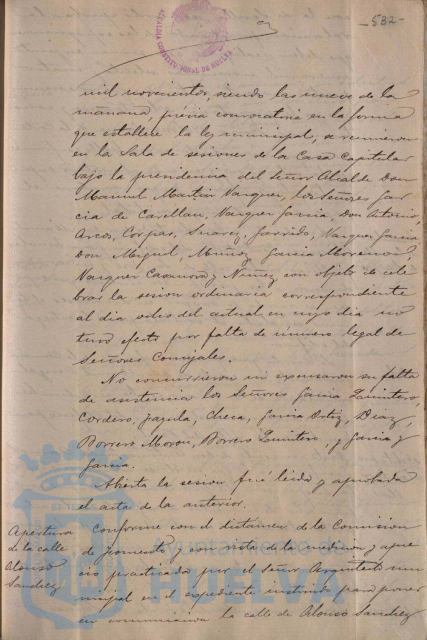 -532-
ALCALDIA CONSTITUCIONAL DE HUELVA
mil novecientos, siendo las nueve de la
mañana, previa convocatoria en la forma
que establece la ley municipal, se reunieron
en la Sala de sesiones de la Casa Capitular
bajo la presidencia del Señor Alcalde Don
Manuel Martin Vazquez, los Señores Gar-
cia de Cavellan, Vazquez Garcia, Don Antonio,
Arcos, Corpas, Suarez, Garrido, Vazquez Garcia
Don Miguel, Muñoz, Garcia Morenon,
Vazquez Casanova y Nuñez con objeto de cele-
brar la sesion ordinaria correspondiente
al dia ocho del actual en cuyo dia no
tuvo efecto por falta de número legal de
Señores Concejales.
No concurrieron ni excusaron su falta
de asistencia los Señores Garcia Quintero,
Cordero, Jaqula, Checa, Garcia Ortiz, Diaz,
Borrero Moron, Borrero Quintero, y Garcia y
Garcia.
Abierta la sesion fué leida y aprobada
el acta de la anterior.
Apertura
de la calle
Alonso
Sanchez
Conforme con el dictamen de la Comision
de Fomento y con vista de la medicion y apre-
cio practicada por el Señor Arquitecto mu-
nicipal en el expediente instruido para poner
en comunicacion la calle de Alonso Sanchez
Ayuntamiento de
HUELVA